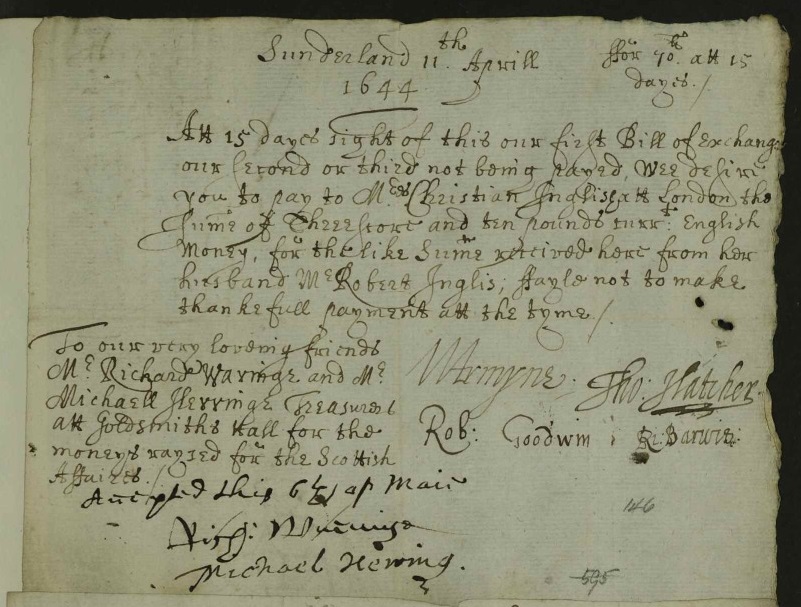 Sunderland 11th Aprill
1644
ffor 70li att 15
dayes./
Att 15 dayes sight of this our first Bill of Exchange
our second or third not being payed, wee desire
you to pay to Mrs Christian Inglis att London the
sume of Threescore and ten pounds curr:t English
money, for the like sume received here from her
husband Mr Robert Inglis; ffayle not to make
thankefull payment att the tyme./
To our very loveing friends
Mr Richard Waringe and Mr
Michaell Herringe Treasurers
att Goldsmiths Hall for the
moneys raysed for the Scottish
Affaires./
WArmyne. Tho: Hatcher.
Rob: Goodwin Ri: Barwis:
Accepted this 6th of Maie
Rich: Waringe
Michael Hering.
146
595